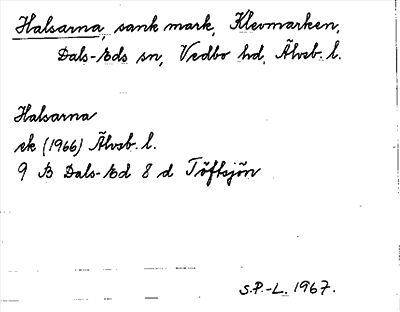 Halsarna, sank mark, Klevmarken,
Dals-Eds sn, Vedbo hd, Älvsb. l.
Halsarna
ek (1966) Älvsb. l.
9 B Dals-Ed 8 d Töftsjön
S.P.-L. 1967.